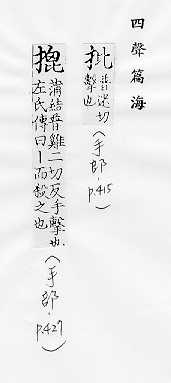 四聲篇海
批 普迷切擊也（手部，p.415）
㨢 蒲結普雞二切反手擊也左氏傳曰｜而殺之也（手部，p.427）